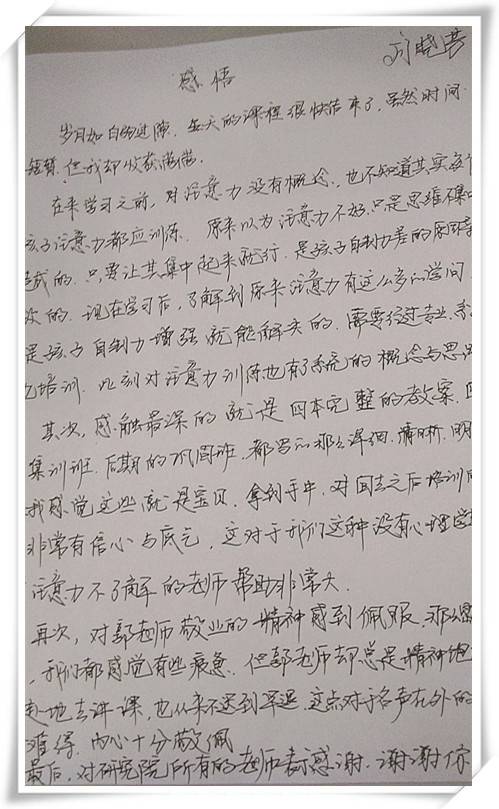 刘晓芸
感悟
岁月如白驹过隙，每天的课程很快结束了，虽然时间
短暂，但我却收获满满。
在来学习之前，对注意力没有概念，也不知道其实每个
孩子注意力都应训练。原来以为注意力不好，只是思维不集中
造成的，只要让其集中起来就行，是孩子自制力差的原因
次的。现在学习后，了解到原来注意力有这么多的学问
是孩子自制力增强就能解决的，需要经过专业、系
化培训。此刻对注意力训练也有了系统的概念与思
其次，感触最深的就是四本完整的教案，
集训班，后期的巩固班，都写的那么详细、清晰、明
我感觉这些就是宝贝，拿到手中，对回去之后培训
非常有信心与底气，这对于我们这种没有心理学
注意力不了解的老师帮助非常大。
再次，对郭老师敬业的精神感到佩服，那么
，我们都感觉有些疲惫，但郭老师却总是精神饱
地去讲课，也从来不迟到早退，这点对于名声在外的
难得，内心十分敬佩
最后，对研究院所有的老师表示感谢，谢谢你